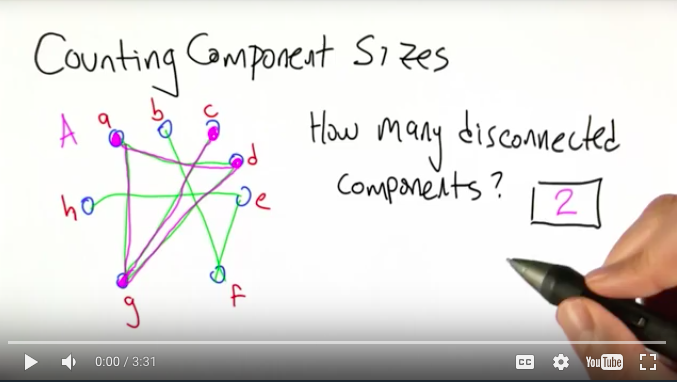 Counting Component Sizes
A
a
b
c
d
e
f
g
h
How many disconnected
components?
2
0:00 / 3:31
CC
YouTube